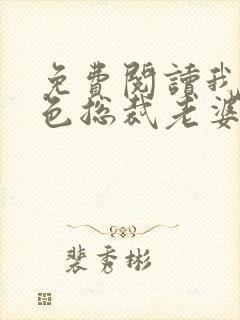 免費閱讀我
色总裁老婆
裴秀彬